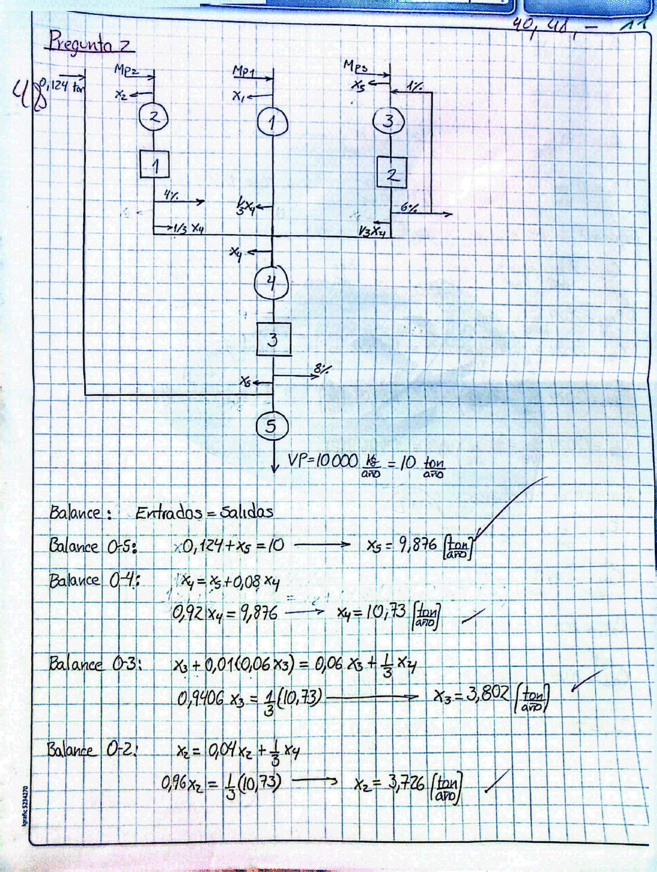 40, 41, - 11
Pregunta 2
48
0,124 ton
Mp2
Mp1
Mp3
x2
x1
x3
1%
2
1
3
1
2
4%
1/3 x4
6%
1/3 x4
1/3 x4
x4
4
3
8%
x5
5
VP = 10000 kg/año = 10 ton/año
Balance: Entradas = Salidas
Balance O-5: 0,124 + x5 = 10 → x5 = 9,876 [ton/año]
Balance O-4: x4 = x5 + 0,08 x4
0,92 x4 = 9,876 → x4 = 10,73 [ton/año]
Balance O-3: x3 + 0,01(0,06 x3) = 0,06 x3 + 1/3 x4
0,9406 x3 = 1/3 (10,73) → x3 = 3,802 [ton/año]
Balance O-2: x2 = 0,04 x2 + 1/3 x4
0,96 x2 = 1/3 (10,73) → x2 = 3,726 [ton/año]